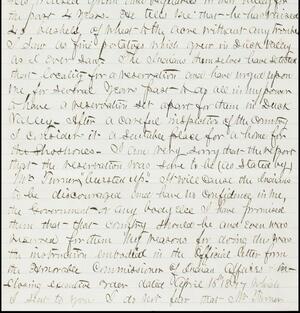 has raised grain and vegetables in that valley for
the past 4 years. He tells me that he has raised
45 bushels of wheat to the acre without any trouble
I saw as fine potatoes which grew in Duck Valley
as I ever saw. The Indians themselves have selected
that locality for a reservation and have urged upon
me for several years past was all in my power
to have a reservation set apart for them in Duck
Valley. After a careful inspection of the country
I consider it a suitable place for a home for
the Shoshones. I am very sorry that the report
that the reservation was sure to be (as stated by
Mr. Turner) busted up. It will cause the Indians
to be discouraged and have no confidence in me,
the Government or any body else I have promised
them that that country should be and even was
reserved for them My reasons for doing this was
the instruction embodied in the Official letter from
the Honorable Commissioner of Indian Affairs in-
closing executive order dated April 16th 1877 which
I sent to you. I do not fear that Mr Turner